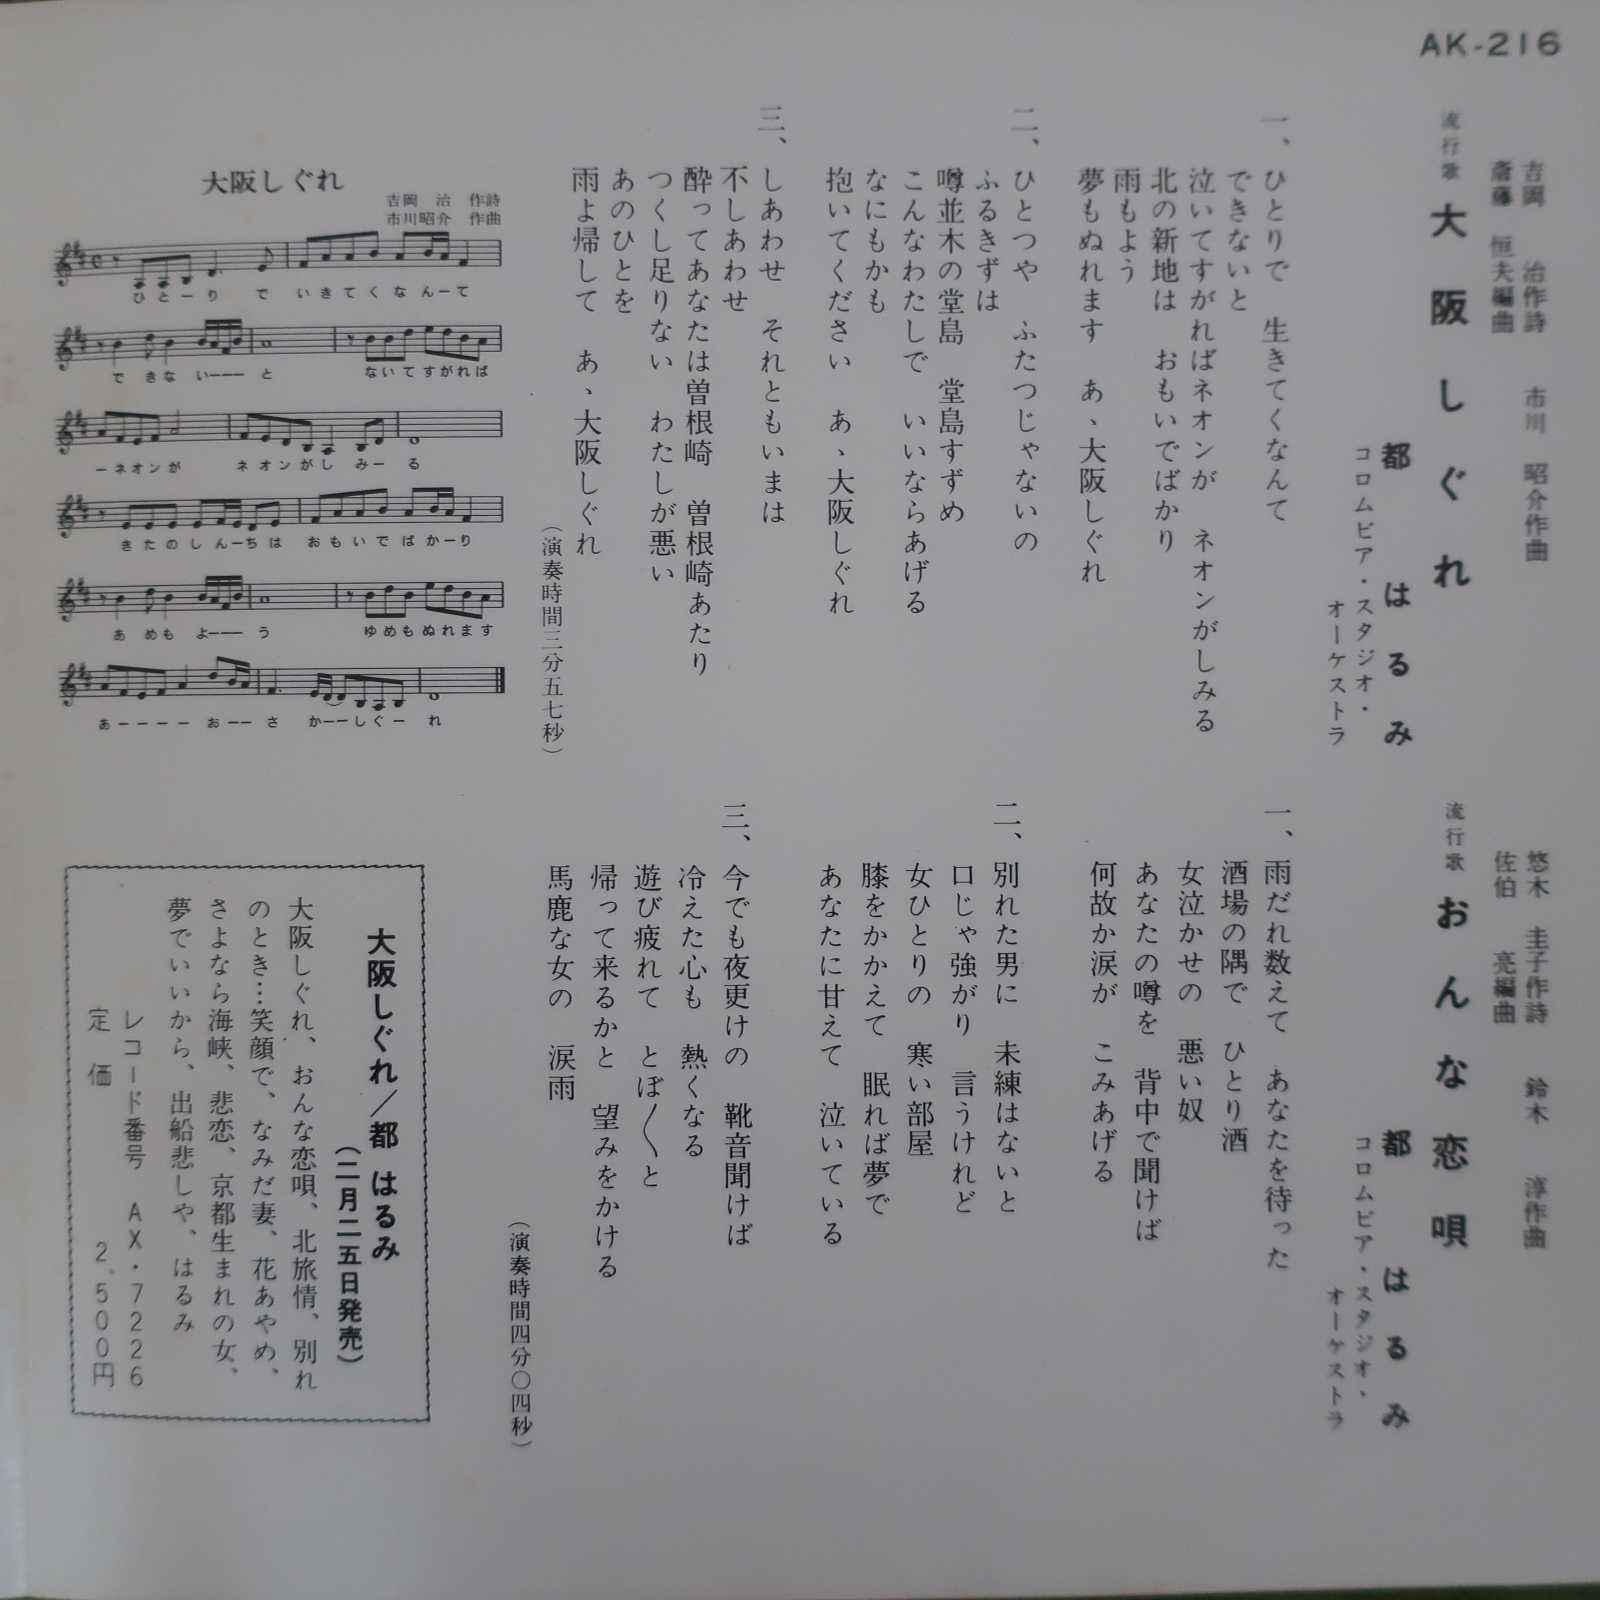 AK-216
吉岡 治作詩 市川 昭介作曲
斎藤 恒夫編曲
流行歌 大阪しぐれ
都 はるみ
コロムビア・スタジオ・
オーケストラ
一、ひとりで 生きてくなんて
できないと
泣いてすがればネオンが ネオンがしみる
北の新地は おもいでばかり
雨もよう
夢もぬれます あゝ大阪しぐれ
二、ひとつや ふたつじゃないの
ふるきずは
噂並木の堂島 堂島すずめ
こんなわたしで いいならあげる
なにもかも
抱いてください あゝ大阪しぐれ
三、しあわせ それともいまは
不しあわせ
酔ってあなたは曽根崎 曽根崎あたり
つくし足りない わたしが悪い
あのひとを
雨よ帰して あゝ大阪しぐれ
(演奏時間三分五七秒)
大阪しぐれ
吉岡 治 作詩
市川昭介 作曲
ひとーり で いきてくなんーて
できない―――と ないてすがれば
ーネオンが ネオンがしみーる
きたのしんーちは おもいでばかーり
あめもよ―――う ゆめもぬれます
あーーーーおーーさ かーーしぐーれ
悠木 圭子作詩 鈴木 淳作曲
佐伯 亮編曲
流行歌 おんな恋唄
都 はるみ
コロムビア・スタジオ・
オーケストラ
一、雨だれ数えて あなたを待った
酒場の隅で ひとり酒
女泣かせの 悪い奴
あなたの噂を 背中で聞けば
何故か涙が こみあげる
二、別れた男に 未練はないと
口じゃ強がり 言うけれど
女ひとりの 寒い部屋
膝をかかえて 眠れば夢で
あなたに甘えて 泣いている
三、今でも夜更けの 靴音聞けば
冷えた心も 熱くなる
遊び疲れて とぼ〳〵と
帰って来るかと 望みをかける
馬鹿な女の 涙雨
(演奏時間四分〇四秒)
大阪しぐれ/都 はるみ
(二月二五日発売)
大阪しぐれ、おんな恋唄、北旅情、別れ
のとき…笑顔で、なみだ妻、花あやめ、
さよなら海峡、悲恋、京都生まれの女、
夢でいいから、出船悲しや、はるみ
レコード番号 AX・7226
定価 2,500円